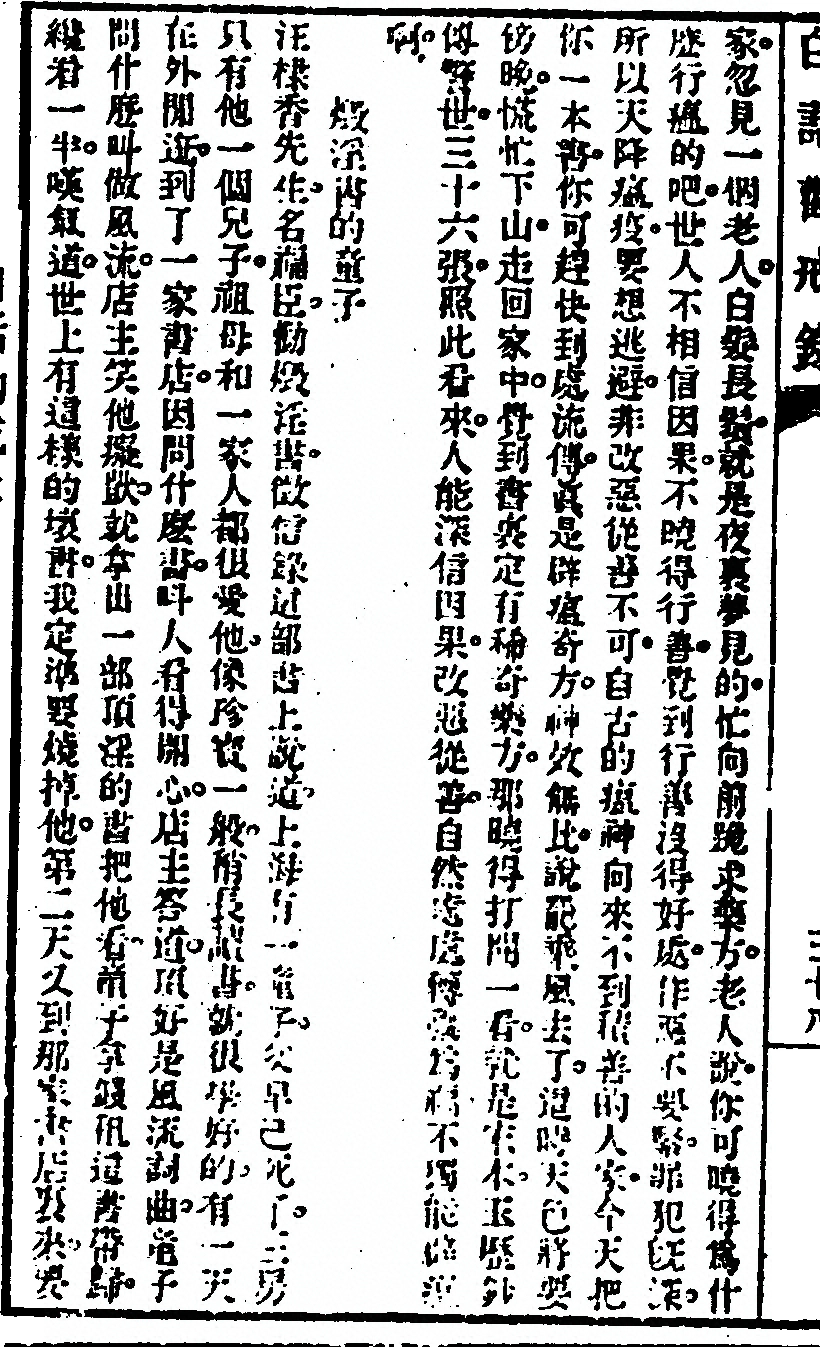 白話勸戒錄
三十八
家忽見一個老人白髮長鬚就是夜裏夢見的忙向前跪求藥方老人說你可曉得為什
麼行瘟的吧世人不相信因果不曉得行善覺到行善沒得好處作惡不要緊罪犯旣深
所以天降瘟疫要想逃避非改惡從善不可自古的瘟神向來不到積善的人家今天把
你一本書你可趕快到處流傳眞是辟瘟奇方神效無比說罷乘風去了這時天色將晏
傍晚慌忙下山走回家中覺到書裏定有稀奇藥方那曉得打開一看就是宋本玉歷鈔
傳警世三十六張照此看來人能深信因果改惡從善自然處處轉禍為福不獨能避瘟
啊
燬淫書的童子
汪棣香先生名福臣勸燬淫書徵信錄這部書上說道上海有一童子父早已死了三男
只有他一個兒子祖母和一家人都很愛他像珍寶一般稍長讀書就很學好的有一天
在外閒逛到了一家書店因問什麼書叫人看得開心店主答道頂好是風流詞曲童子
問什麼叫做風流店主笑他癡獃就拿出一部頂淫的書把他看童子拿錢租這書帶歸
纔看一半嘆氣道世上有這樣的壞書我定準要燒掉他第二天又到那家書店裏來要